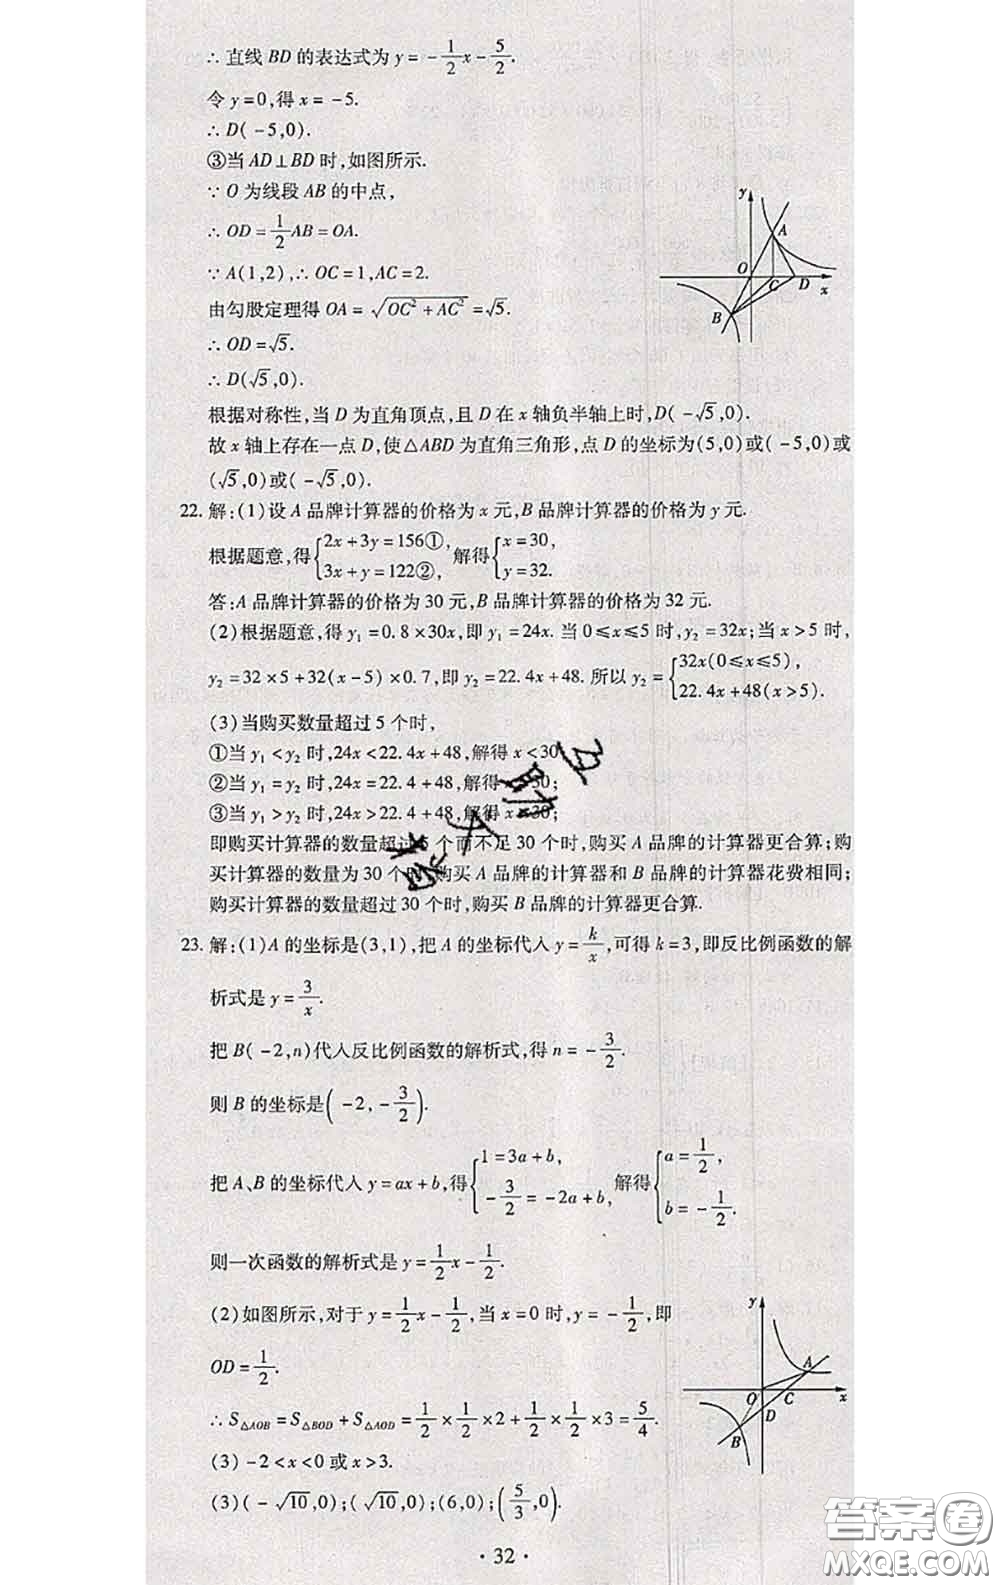 ∴ 直线 BD 的表达式为 y = -1/2x - 5/2.
令 y=0,得 x = -5.
∴ D( -5,0).
③当 AD⊥BD 时,如图所示.
∵ O 为线段 AB 的中点,
∴ OD = 1/2AB = OA.
∵ A(1,2),∴ OC = 1,AC = 2.
由勾股定理得 OA = √(OC² + AC²) = √5.
∴ OD = √5.
∴ D(√5,0).
根据对称性,当 D 为直角顶点,且 D 在 x 轴负半轴上时,D( -√5,0).
故 x 轴上存在一点 D,使△ABD 为直角三角形,点 D 的坐标为(5,0)或( -5,0)或
(√5,0)或( -√5,0).
y
A
O
C
D
x
B
22. 解:(1)设 A 品牌计算器的价格为 x 元,B 品牌计算器的价格为 y 元.
根据题意,得{2x + 3y = 156①, 3x + y = 122②, 解得{x = 30, y = 32.
答:A 品牌计算器的价格为 30 元,B 品牌计算器的价格为 32 元.
(2)根据题意,得 y₁ = 0.8 × 30x,即 y₁ = 24x. 当 0≤x≤5 时,y₂ = 32x;当 x > 5 时,
y₂ = 32 × 5 + 32(x - 5) × 0.7,即 y₂ = 22.4x + 48. 所以 y₂ = {32x(0≤x≤5), 22.4x + 48(x > 5).
(3)当购买数量超过 5 个时,
①当 y₁ < y₂ 时,24x < 22.4x + 48,解得 x < 30
②当 y₁ = y₂ 时,24x = 22.4 + 48,解得 30;
③当 y₁ > y₂ 时,24x > 22.4 + 48,解得 30;
即购买计算器的数量超过 5 个而不足 30 个时,购买 A 品牌的计算器更合算;购
买计算器的数量为 30 个时,购买 A 品牌的计算器和 B 品牌的计算器花费相同;
购买计算器的数量超过 30 个时,购买 B 品牌的计算器更合算.
23. 解:(1)A 的坐标是(3,1),把 A 的坐标代入 y = k/x,可得 k = 3,即反比例函数的解
析式是 y = 3/x.
把 B( -2,n)代入反比例函数的解析式,得 n = -3/2.
则 B 的坐标是( -2, -3/2).
把 A、B 的坐标代入 y = ax + b,得{1 = 3a + b, -3/2 = -2a + b, 解得{a = 1/2, b = -1/2.
则一次函数的解析式是 y = 1/2x - 1/2.
(2)如图所示,对于 y = 1/2x - 1/2,当 x = 0 时,y = -1/2,即
OD = 1/2.
∴ S△AOB = S△BOD + S△AOD = 1/2 × 1/2 × 2 + 1/2 × 1/2 × 3 = 5/4.
(3) -2 < x < 0 或 x > 3.
(3)( -√10,0);(√10,0);(6,0);(5/3,0).
y
A
O
C
x
D
B
· 32 ·
答案圈
MXQE.COM